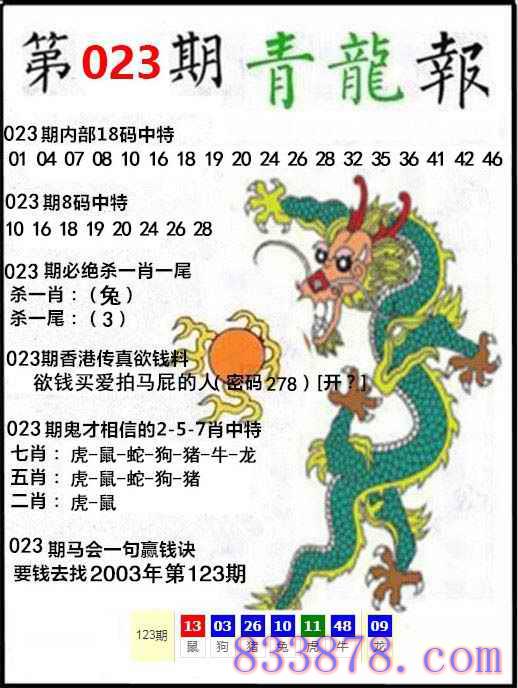 第023期青龍報
023期内部18码中特
01 04 07 08 10 16 18 19 20 24 26 28 32 35 36 41 42 46
023期8码中特
10 16 18 19 20 24 26 28
023期必绝杀一肖一尾
杀一肖：（兔）
杀一尾：（3）
023期香港传真欲钱料
欲钱买爱拍马屁的人（密码278）[开？]
023期鬼才相信的2-5-7肖中特
七肖：虎-鼠-蛇-狗-猪-牛-龙
五肖：虎-鼠-蛇-狗-猪
二肖：虎-鼠
023期马会一句赢钱诀
要钱去找2003年第123期
123期 13 03 26 10 11 48 09
鼠 狗 猪 兔 虎 牛 龙
833878.com